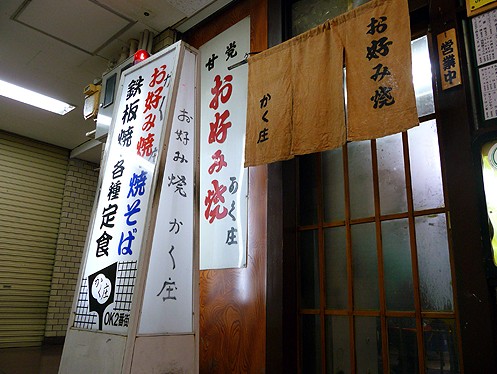 お好み焼 焼そば
鉄板焼 各種定食
かく庄
OK2番街
お好み焼 かく庄
甘党
お好み焼
かく庄
お好み焼
かく庄
営業中